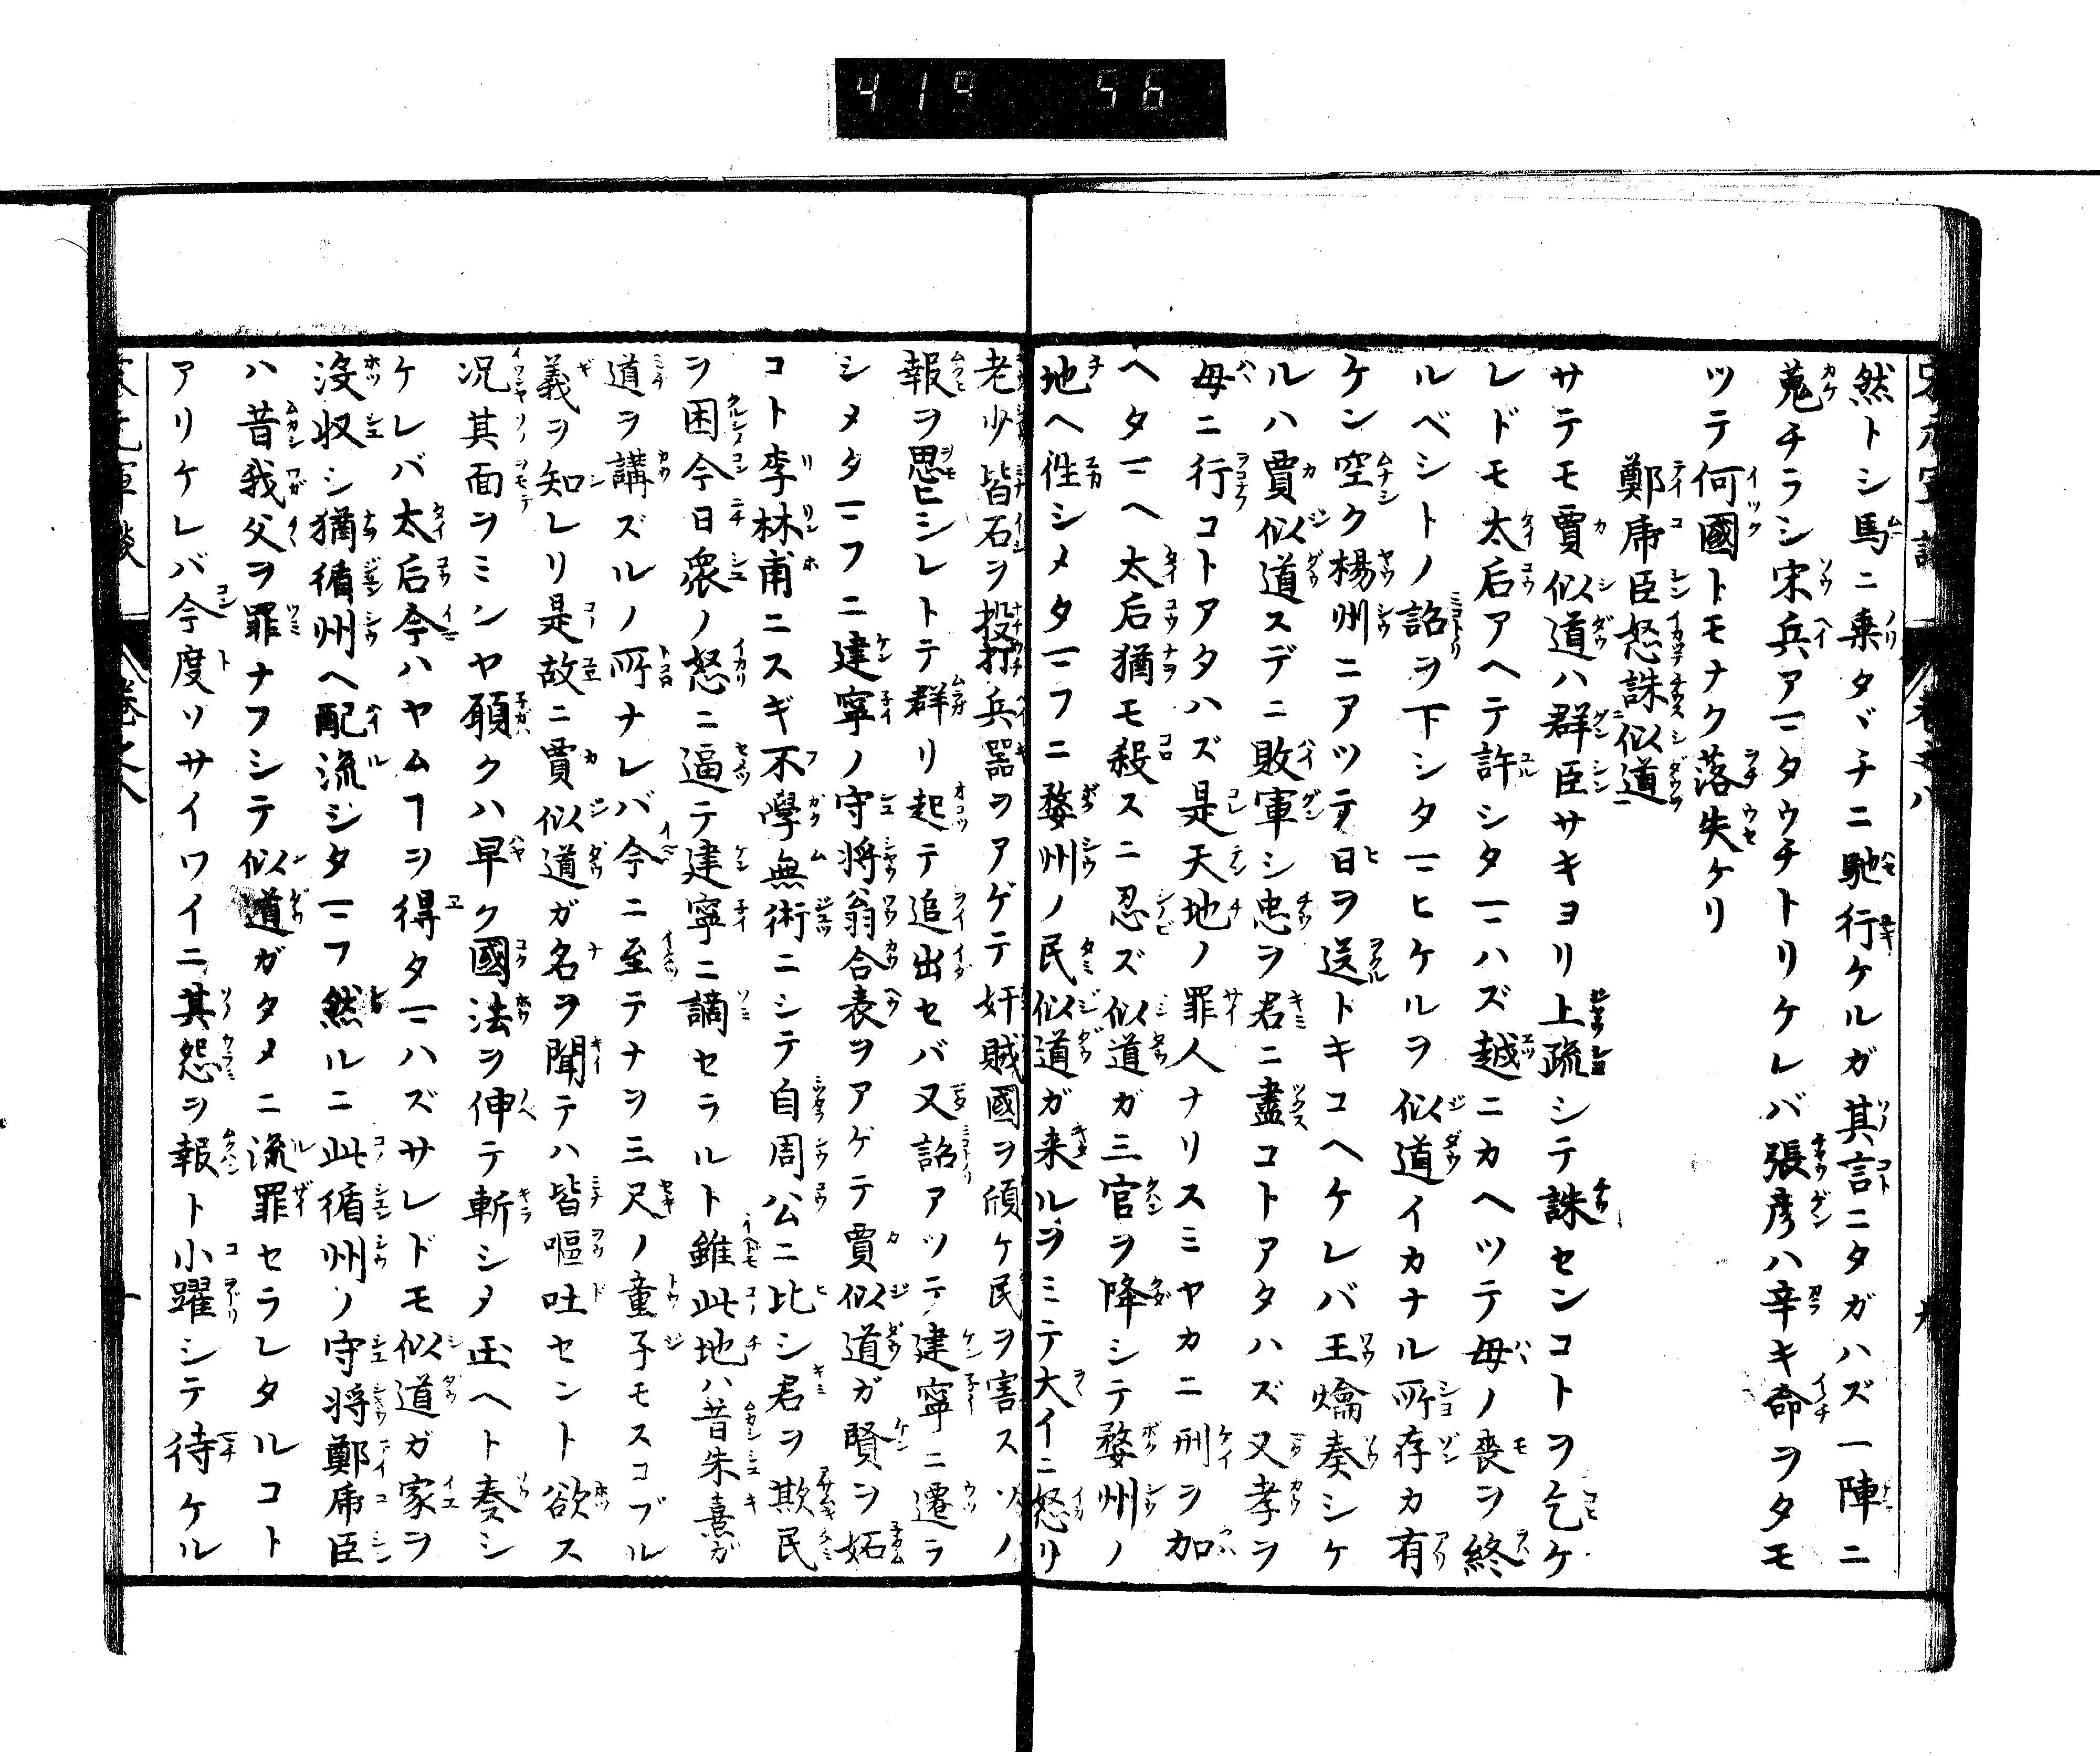 419 56
然トシ馬ニ乗タヾチニ馳行ケルガ其言ニタガハズ一陣ニ
蒐チラシ宋兵アマタウチトリケレバ張彦ハ辛キ命ヲタモ
ツテ何國トモナク落失ケリ
鄭虎臣怒誅似道
サテモ賈似道ハ群臣サキヨリ上疏シテ誅センコトヲ乞ケ
レドモ太后アヘテ許シタマハズ越ニカヘツテ母ノ喪ヲ終
ルベシトノ詔ヲ下シタマヒケルヲ似道イカナル所存カ有
ケン空ク楊州ニアツテ日ヲ送トキコヘケレバ王爚奏シケ
ルハ賈似道スデニ敗軍シ忠ヲ君ニ盡コトアタハズ又孝ヲ
母ニ行コトアタハズ是天地ノ罪人ナリスミヤカニ刑ヲ加
ヘタマヘ太后猶モ殺スニ忍ズ似道ガ三官ヲ降シテ婺州ノ
地ヘ徃シメタマフニ婺州ノ民似道ガ来ルヲミテ大イニ怒リ
老少皆石ヲ投打兵器ヲアゲテ奸賊國ヲ傾ケ民ヲ害スソノ
報ヲ思ヒシレトテ群リ起テ追出セバ又詔アツテ建寧ニ遷ラ
シメタマフニ建寧ノ守将翁合表ヲアゲテ賈似道ガ賢ヲ妬
コト李林甫ニスギ不學無術ニシテ自周公ニ比シ君ヲ欺民
ヲ困今日衆ノ怒ニ逼テ建寧ニ謫セラルト雖此地ハ昔朱熹ガ
道ヲ講ズルノ所ナレバ今ニ至テナヲ三尺ノ童子モスコブル
義ヲ知レリ是故ニ賈似道ガ名ヲ聞テハ皆嘔吐セント欲ス
况其面ヲミンヤ願クハ早ク國法ヲ伸テ斬シメ玉ヘト奏シ
ケレバ太后今ハヤムヿヲ得タマハズサレドモ似道ガ家ヲ
没収シ猶循州ヘ配流シタマフ然ルニ此循州ノ守将鄭虎臣
ハ昔我父ヲ罪ナフシテ似道ガタメニ流罪セラレタルコト
アリケレバ今度ソサイワイニ其怨ヲ報ト小躍シテ待ケル